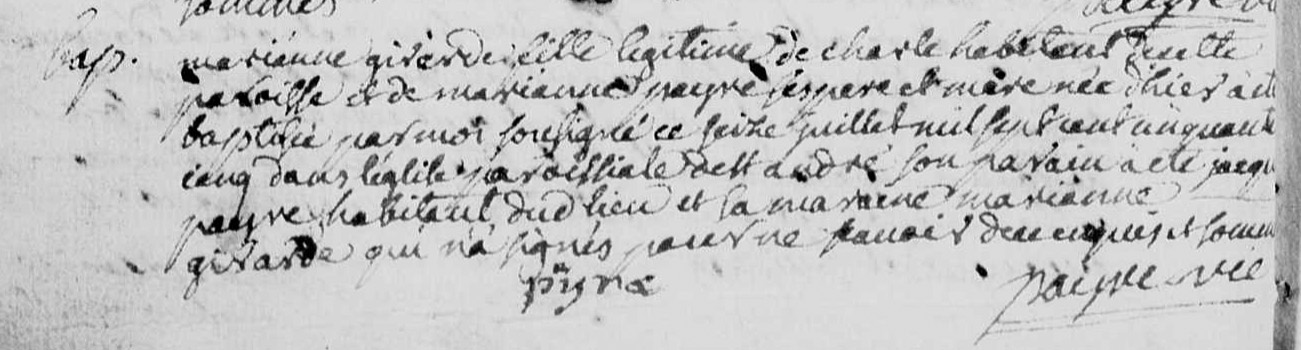 sommés
bap. marianne girarde fille legitime de charle habitant de cette
paroisse et de marianne payre ses pere et mere née dhier à eté
baptisée par moi soussigné ce seize juillet mil sept cent cinquante
cinq dans léglise paroissiale de st andré son parain à eté jacque
payre habitant dud lieu et sa maraine marianne
girarde qui n'a signés pour ne scavoir de ce enquis et sommé
payre payre vic